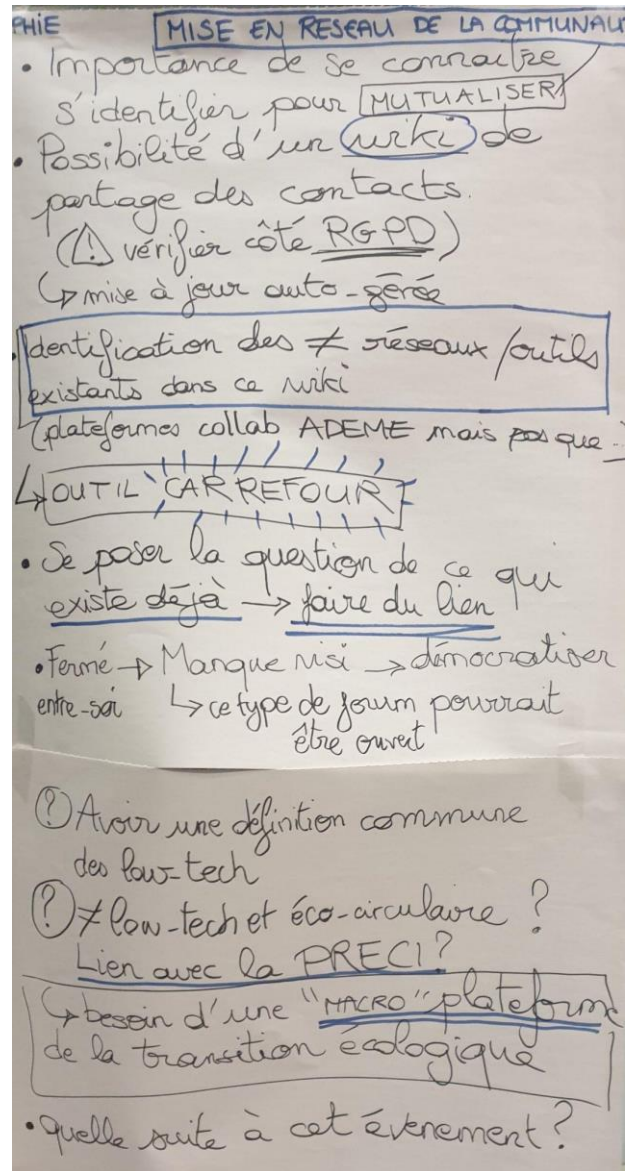 PHIE
MISE EN RESEAU DE LA COMMUNAUT
• Importance de se connaitre
s'identifier pour MUTUALISER
• Possibilité d'un wiki de
partage des contacts.
(⚠ vérifier côté RGPD)
↳ mise à jour auto-gérée
• Identification des ≠ réseaux/outils
existants dans ce wiki
(plateformes collab ADEME mais pas que...)
↳ OUTIL CARREFOUR
• Se poser la question de ce qui
existe déjà → faire du lien
• Fermé → Manque visi → démocratiser
entre-soi ↳ ce type de forum pourrait
être ouvert
? Avoir une définition commune
des low-tech
? ≠ low-tech et éco-circulaire ?
Lien avec la PRECI ?
↳ besoin d'une "MACRO" plateform
de la transition écologique
• quelle suite à cet évenement ?